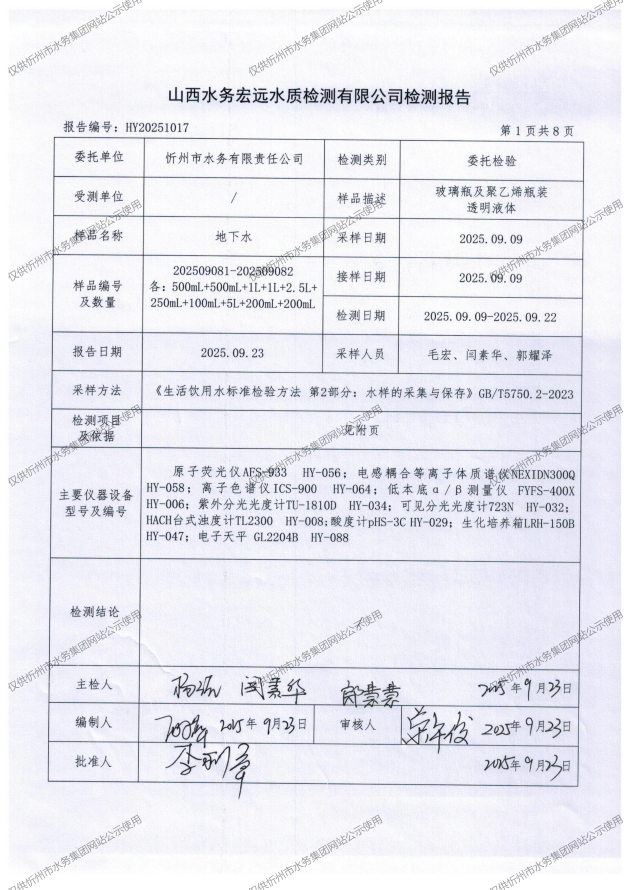 山西水务宏远水质检测有限公司检测报告
报告编号：HY20251017
第 1 页共 8 页
委托单位 忻州市水务有限责任公司 检测类别 委托检验
受测单位 / 样品描述 玻璃瓶及聚乙烯瓶装
透明液体
样品名称 地下水 采样日期 2025.09.09
样品编号
及数量
202509081-202509082
各：500mL+500mL+1L+1L+2.5L+
250mL+100mL+5L+200mL+200mL
接样日期 2025.09.09
检测日期 2025.09.09-2025.09.22
报告日期 2025.09.23 采样人员 毛宏、闫素华、郭耀泽
采样方法 《生活饮用水标准检验方法 第2部分：水样的采集与保存》GB/T5750.2-2023
检测项目
及依据
见附页
主要仪器设备
型号及编号
原子荧光仪AFS-933 HY-056；电感耦合等离子体质谱仪NEXIDN300Q
HY-058；离子色谱仪ICS-900 HY-064；低本底α/β测量仪 FYFS-400X
HY-006；紫外分光光度计TU-1810D HY-034；可见分光光度计723N HY-032；
HACH台式浊度计TL2300 HY-008;酸度计pHS-3C HY-029；生化培养箱LRH-150B
HY-047；电子天平 GL2204B HY-088
检测结论 /
主检人 闫素华 2025年9月23日
编制人 2025年9月23日 审核人 2025年9月23日
批准人 2025年9月23日
仅供忻州市水务集团网站公示使用